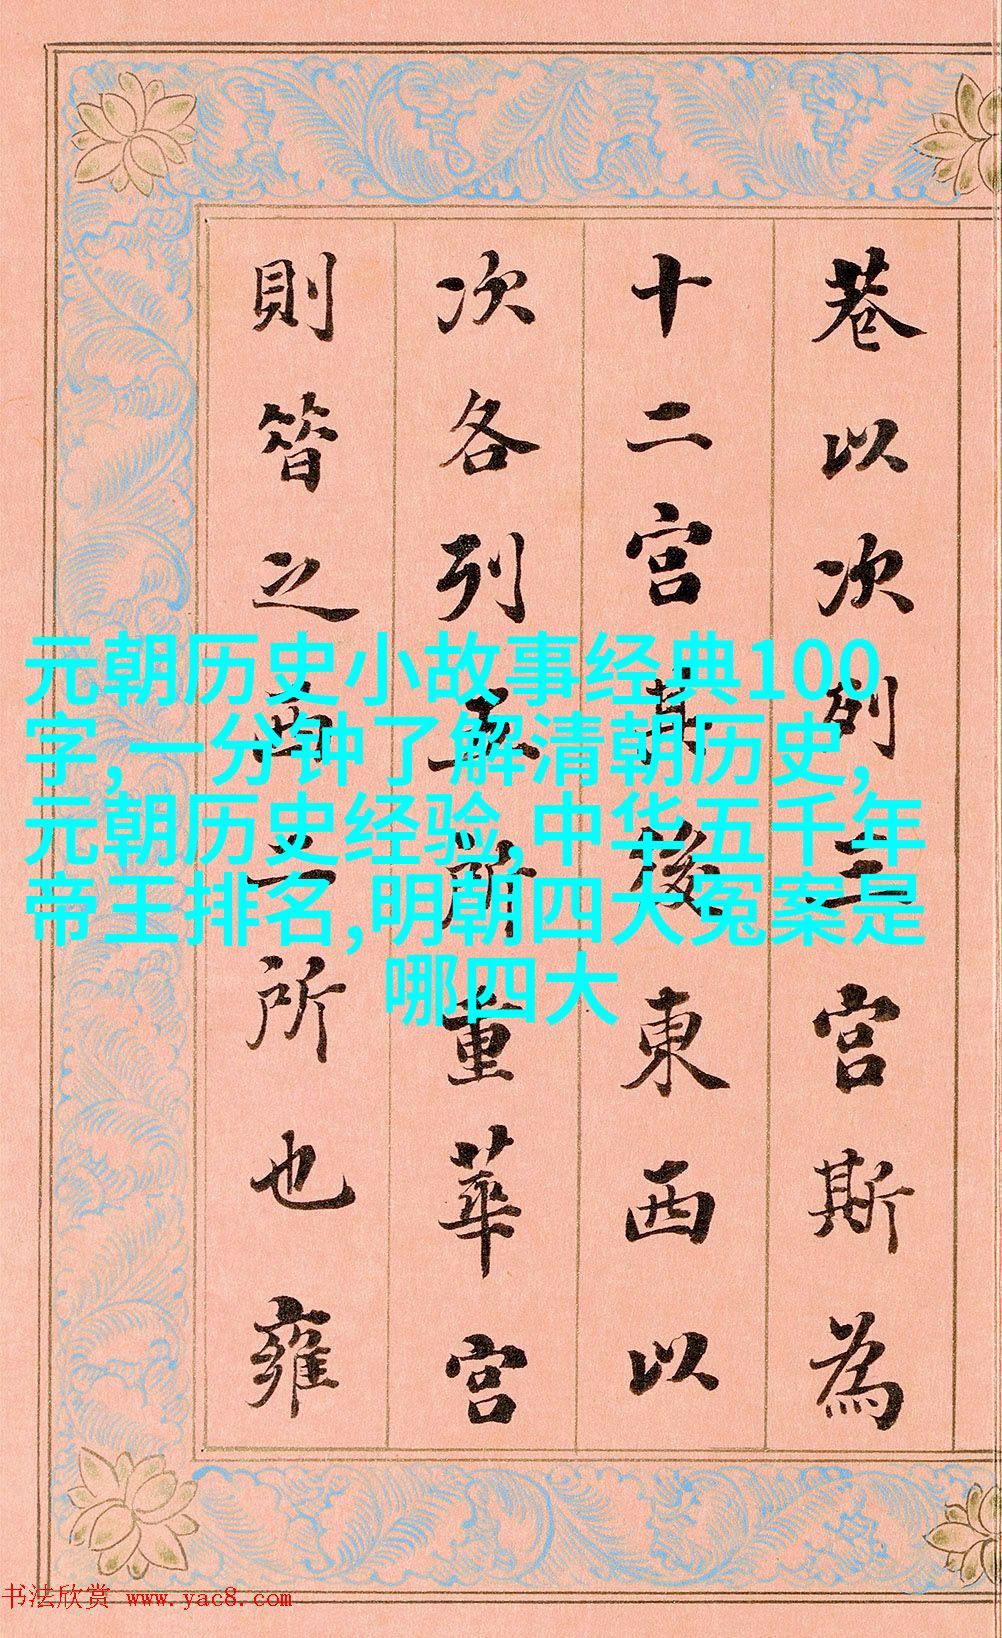 巷以次列三宫斯為
十二宫其後東西以
次各列五所重華宫
則昔之西二所也雍
元朝历史小故事经典100
字,一分钟了解清朝历史,
元朝历史经验,中华五千年
帝王排名,明朝四大冤案是
哪四大
书法欣赏 www.yac8.com